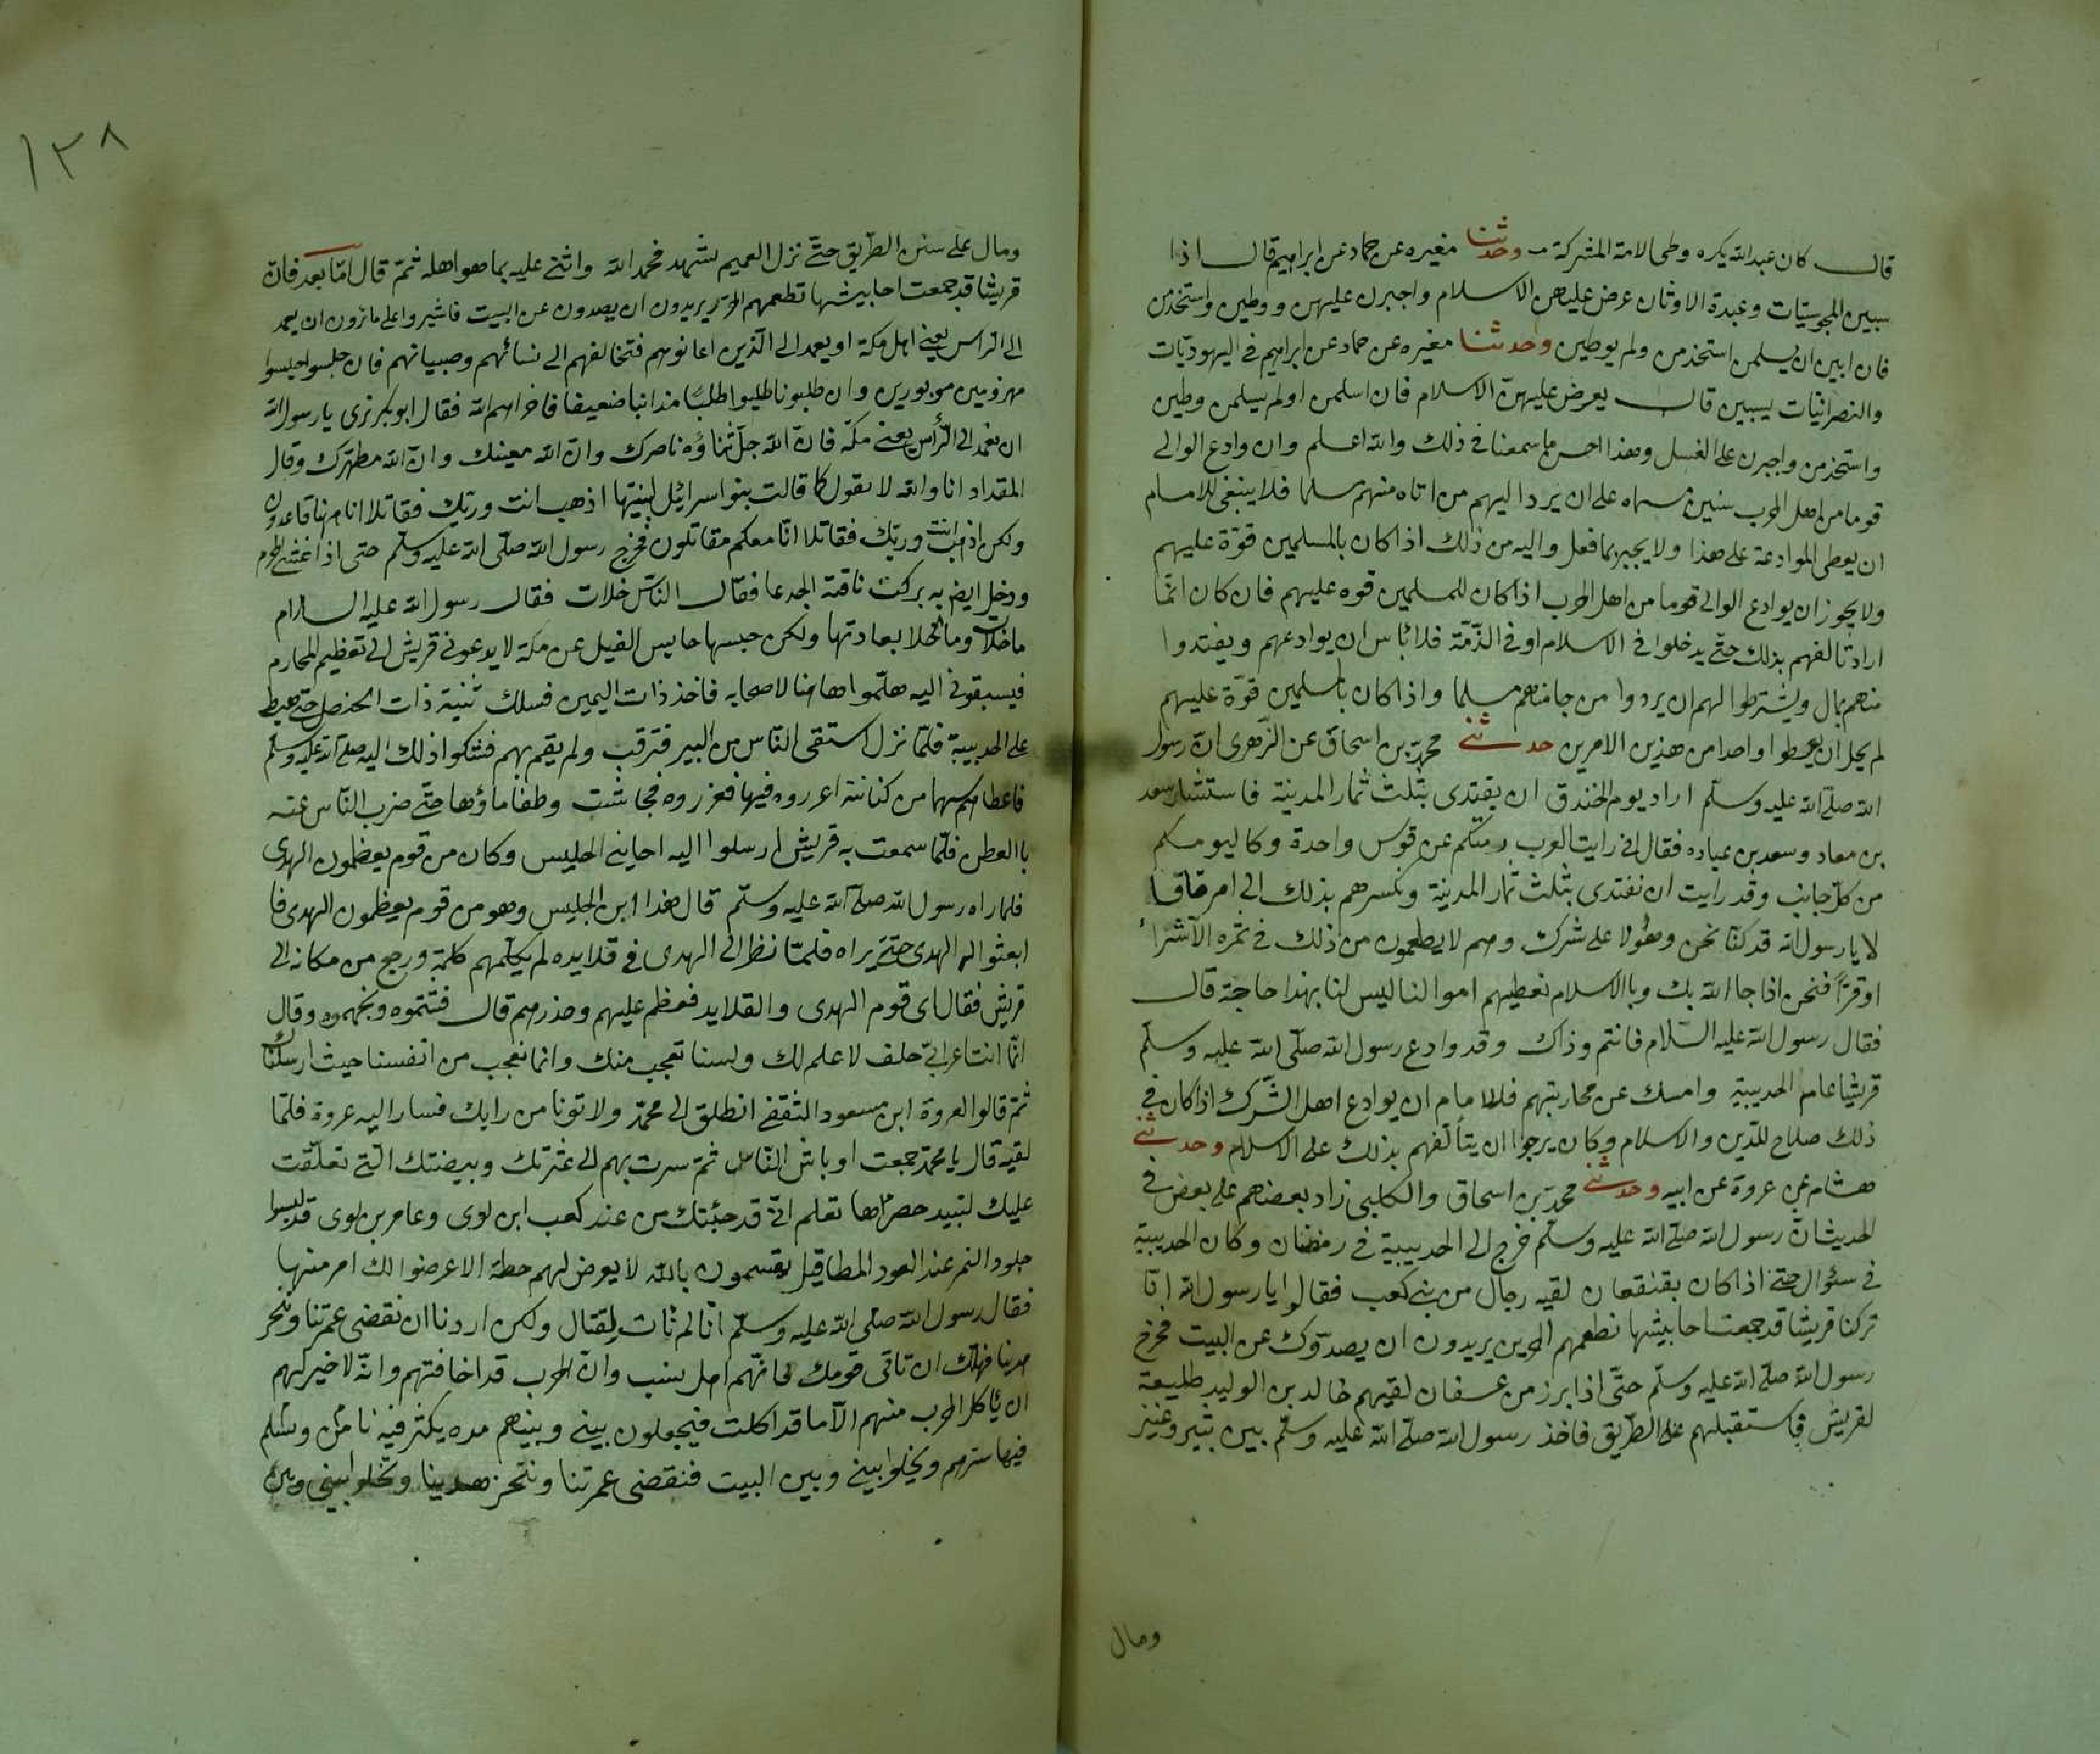 قال كان عبد الله يكره وطى الامة المشركة وحدثنا مغيره عن حماد عن ابراهيم قال اذا
سبين المجوسيات وعبدة الاوثان عرض عليهن الاسلام واجبرن عليهن ووطين واستخدمن
فان ابين ان يسلمن استخدمن ولم يوطين وحدثنا مغيره عن حماد عن ابراهيم في اليهوديات
والنصرانيات يسبين قال يعرض عليهن الاسلام فان اسلمن اولم يسلمن وطين
واستخدمن واجبرن على الغسل وهذا احسن ما سمعنا في ذلك والله اعلم وان وادع الوالي
قوما من اهل الحرب سنين مسماه على ان يرد اليهم من اتاه منهم مسلما فلا ينبغي للامام
ان يعطى الموادعة على هذا ولا يجيز بما فعل واليه من ذلك اذا كان بالمسلمين قوة عليهم
ولا يجوز ان يوادع الوالي قوما من اهل الحرب اذا كان للمسلمين قوه عليهم فان كان انما
اراد تالفهم بذلك حتى يدخلوا في الاسلام او في الذمة فلا باس ان يوادعهم ويفتدوا
منهم بمال ويشترطوا لهم ان يردوا من جا منهم مسلما واذا كان بالمسلمين قوة عليهم
لم يحل ان يعطوا واحدا من هذين الامرين حدثني محمد بن اسحاق عن الزهرى ان رسول
الله صلى الله عليه وسلم اراد يوم الخندق ان يفتدى بثلث ثمار المدينة فاستشار سعد
بن معاد وسعد بن عباده فقال اني رايت العرب رمتكم عن قوس واحدة وكاليوكم
من كل جانب وقد رايت ان نفتدى بثلث ثمار المدينة ونكسرهم بذلك الى امر ما قالا
لا يا رسول الله قد كنا نحن وهولا على شرك وهم لا يطعمون من ذلك في ثمره الا شراء
او قرا فنحن اذا جا الله بك وبالاسلام نعطيهم اموالنا ليس لنا بهذا حاجة قال
فقال رسول الله عليه السلام فانتم وذاك وقد وادع رسول الله صلى الله عليه وسلم
قريشا عام الحديبية وامسك عن محاربتهم فللامام ان يوادع اهل الشرك اذا كان في
ذلك صلاح للدين والاسلام وكان يرجوا ان يتألفهم بذلك على الاسلام وحدثني
هشام عن عروة عن ابيه وحدثني محمد بن اسحاق والكلبي زاد بعضهم على بعض في
الحديث ان رسول الله صلى الله عليه وسلم خرج الى الحديبية في رمضان وكان الحديبية
في سؤال حتى اذا كان بعسفان لقيه رجال من بني كعب فقالوا يا رسول الله انا
تركنا قريشا قد جمعت احابيشها تطعمهم الخزير يريدون ان يصدوك عن البيت فخرج
رسول الله صلى الله عليه وسلم حتى اذا برز من عسفان لقيهم خالد بن الوليد طليعة
لقريش فاستقبلهم على الطريق فاخذ رسول الله صلى الله عليه وسلم بين
ومال
١٣٨
ومال على سنن الطريق حتى نزل الغميم شهد فحمد الله واثنى عليه بما هو اهله ثم قال اما بعد فان
قريشا قد جمعت احابيشها تطعمهم الخزير يريدون ان يصدون عن البيت فاشيروا على ما ترون ان نعمد
الى الراس يعنى اهل مكة او يعمد الى الذين اعانوهم فتخالفهم الى نسائهم وصبيانهم فان جلسوا جلسوا
مهزومين موتورين وان طلبونا طلبوا طلبا مدانيا ضعيفا فاخزاهم الله فقال ابو بكر نرى يا رسول الله
ان نعمد الى الرأس يعنى مكة فان الله جل ثناؤه ناصرك وان الله معينك وان الله مطهرك وقال
المقداد انا والله لا نقول كما قالت بنو اسرائيل لنبيها اذهب انت وربك فقاتلا انا هنا قاعدون
ولكن اذهب انت وربك فقاتلا انا معكم مقاتلون فخرج رسول الله صلى الله عليه وسلم حتى اذا غشى الحرم
ودخل ايضا به بركت ناقته الجدعا فقال الناس خلات فقال رسول الله عليه السلام
ما خلات وما الخلا بعادتها ولكن حبسها حابس الفيل عن مكة لا يدعونى قريش الى تعظيم المحارم
فيسبقونى اليه هلموا هاهنا لاصحابه فاخذ ذات اليمين فسلك ثنية ذات الحنضل حتى هبط
على الحديبية فلما نزل استقى الناس من البير فنزفت ولم يقم بهم فشكوا ذلك اليه صلى الله عليه وسلم
فاعطاهم سهما من كنانته اغرروه فيها فغرزوه فجاشت وطفا ماؤها حتى ضرب الناس عنه
بالعطن فلما سمعت به قريش ارسلوا اليه اخا بنى الحليس وكان من قوم يعظمون الهدى
فلما راه رسول الله صلى الله عليه وسلم قال هذا ابن الحليس وهو من قوم يعظمون الهدى فا
ابعثوا له الهدى حتى يراه فلما نظر الى الهدى في قلايده لم يكلمهم كلمة ورجع من مكانه الى
قريش فقال اى قوم الهدى والقلايد فعظم عليهم وحذرهم قال فشتموه وجهموه وقال
انما انت اعرابى جلف لا علم لك ولسنا نعجب منك وانما نعجب من انفسنا حيث ارسلناك
ثم قالوا لعروة ابن مسعود الثقفى انطلق الى محمد ولا تؤتا من رايك فسار اليه عروة فلما
لقيه قال يا محمد جمعت اوباش الناس ثم سرت بهم الى عترتك وبيضتك التى تعلقت
عليك لتبيد حضراها تعلم انى قد جئتك من عند كعب ابن لوى وعامر بن لوى قد لبسوا
جلود النمر عند العود المطافيل يقسمون بالله لا يعرض لهم خطة الا عرضوا لك امر منها
فقال رسول الله صلى الله عليه وسلم انا لم نات لقتال ولكن اردنا ان نقضى عمرتنا وننحر
هدينا فهلك ان تاتى قومك فانهم اهل نسب وان الحرب قد اخافتهم وانه لا خير لهم
ان يأكل الحرب منهم الا ما قد اكلت فيجعلون بينى وبينهم مده يكثر فيه نا
فيها سربهم ويخلوا بينى وبين البيت فنقضى عمرتنا وننحر هدينا ويخلوا بينى وبين